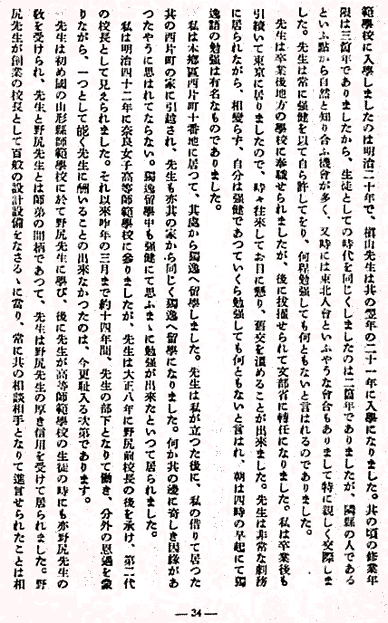 範學校に入學しましたのは明治二十年で、槇山先生は其の翌年の二十一年に入學になりました。其の頃の修業年
限は三箇年でありましたから、生徒としての時代を同じくしましたのは二箇年でありましたが、隣縣の人である
といふ點から自然と知り合ふ機會が多く、又時には東北人會といふやうな會合もありまして特に親しく交際しま
した。先生は常に强健を以て自ら許してをり、何程勉强しても何ともないと言はれるのでありました。
先生は卒業後地方の學校に奉職せられましたが、後に拔擢せられて文部省に轉任になりました。私は卒業後も
引續いて東京に居りましたので、時々往來してお目に懸り、舊交を溫めることが出來ました。先生は非常な劇務
に居られながら、相變らず、自分は强健であつていくら勉强しても何ともないと言はれ、朝は四時の早起にて獨
逸語の勉强は有名なものでありました。
私は本鄕區西片町十番地に居つて、其處から獨逸へ留學しました。先生は私が立つた後に、私の借りて居つた
其の西片町の家に引越され、先生も亦其の家から同じく獨逸へ留學になりました。何か其の邊に奇しき因緣があ
つたやうに思はれてならない。獨逸留學中も强健にて思ふまゝに勉强が出來たといつて居られました。
私は明治四十二年に奈良女子高等師範學校に參りましたが、先生は大正八年に野尻前校長の後を承け、第二代
の校長として見えられました。それ以來昨年の三月まで約十四年間、先生の部下となりて働き、分外の恩遇を蒙
りながら、一つとして能く先生に酬いることの出來なかつたのは、今更耻入る次第であります。
先生は初め國の山形縣師範學校に於て野尻先生に學び、後に先生が高等師範學校の生徒の時にも亦野尻先生の
敎を受けられ、先生と野尻先生とは師弟の間柄であつて、先生は野尻先生の厚き信用を受けて居られました。野
尻先生が創業の校長として百般の設計設備をなさるゝに當り、常に其の相談相手となりて進言せられたことは相
— 34 —